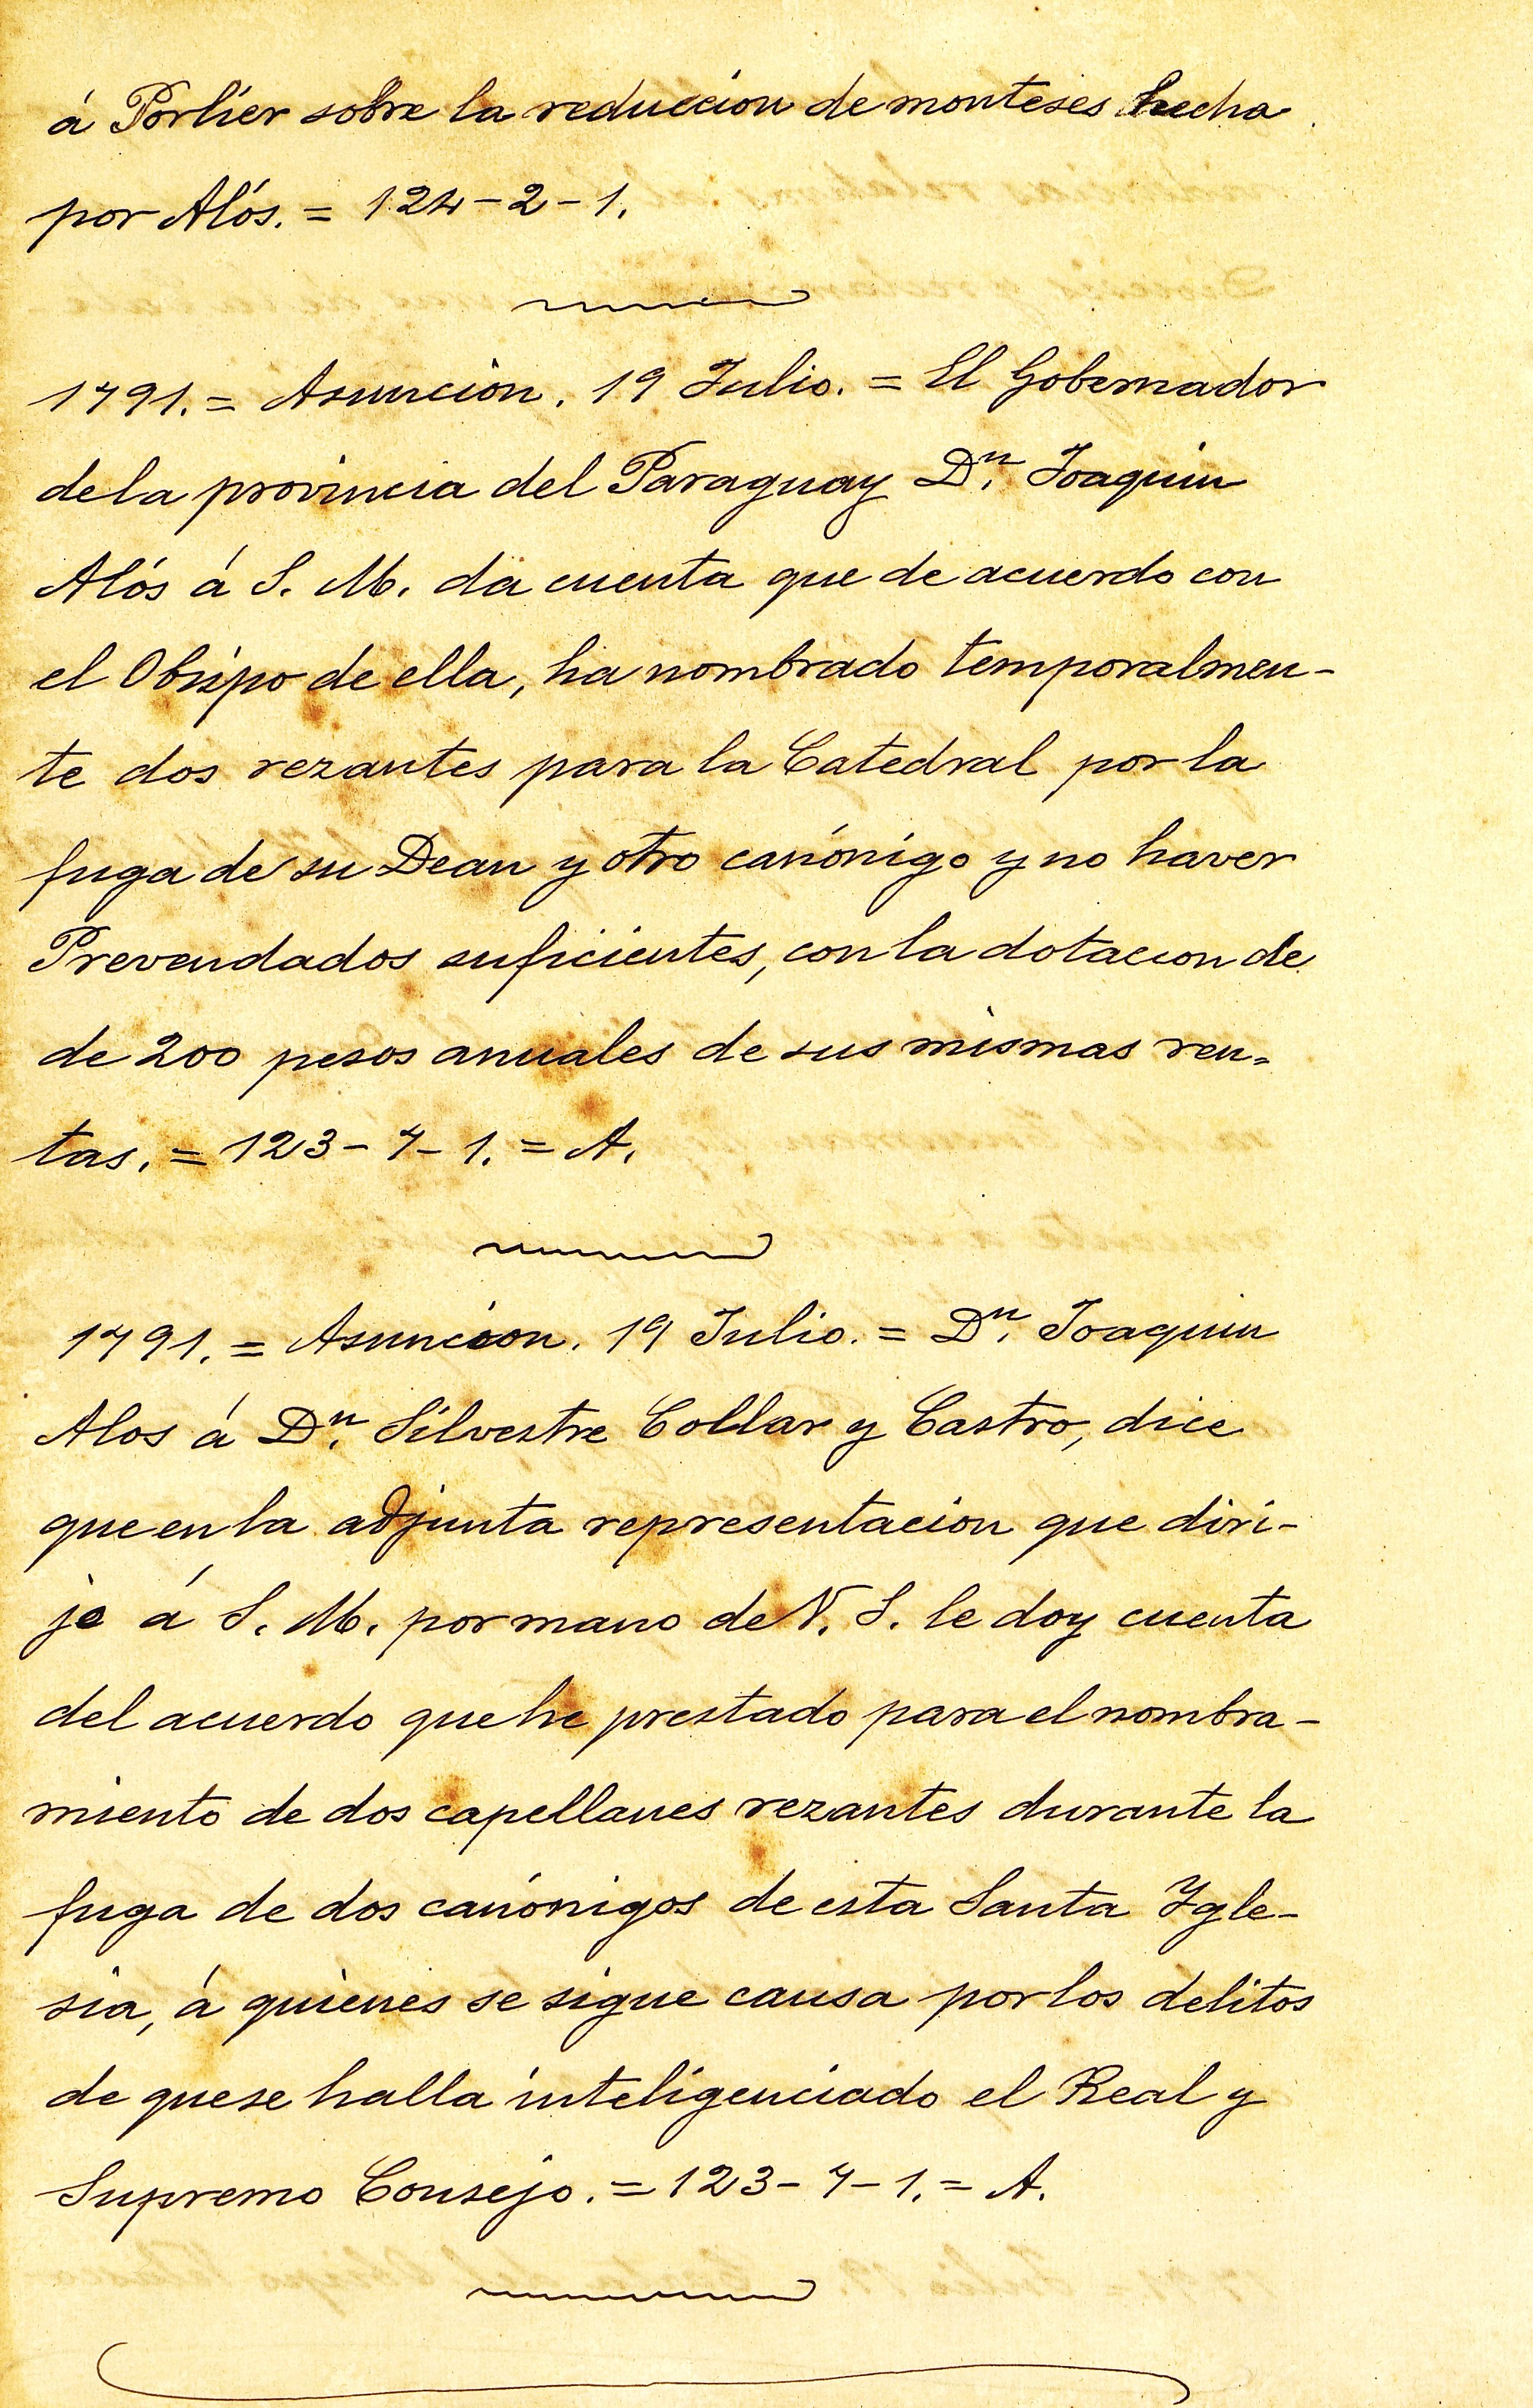 á Porlier sobre la reduccion de monteses hecha
por Alós. = 124-2-1.
1791. = Asuncion. 19 Julio. = El Gobernador
de la provincia del Paraguay Dⁿ. Joaquin
Alós á S. M. da cuenta que de acuerdo con
el Obispo de ella, ha nombrado temporalmen-
te dos rezantes para la Catedral por la
fuga de su Dean y otro canónigo y no haver
Prevendados suficientes, con la dotacion de
de 200 pesos anuales de sus mismas ren-
tas. = 123-7-1. = A.
1791. = Asuncion. 19 Julio. = Dⁿ. Joaquin
Alos á Dⁿ. Silvestre Collar y Castro, dice
que en la adjunta representacion que diri-
je á S. M. por mano de V. S. le doy cuenta
del acuerdo que he prestado para el nombra-
miento de dos capellanes rezantes durante la
fuga de dos canónigos de esta Santa Ygle-
sia, á quienes se sigue causa por los delitos
de que se halla inteligenciado el Real y
Supremo Consejo. = 123-7-1. = A.